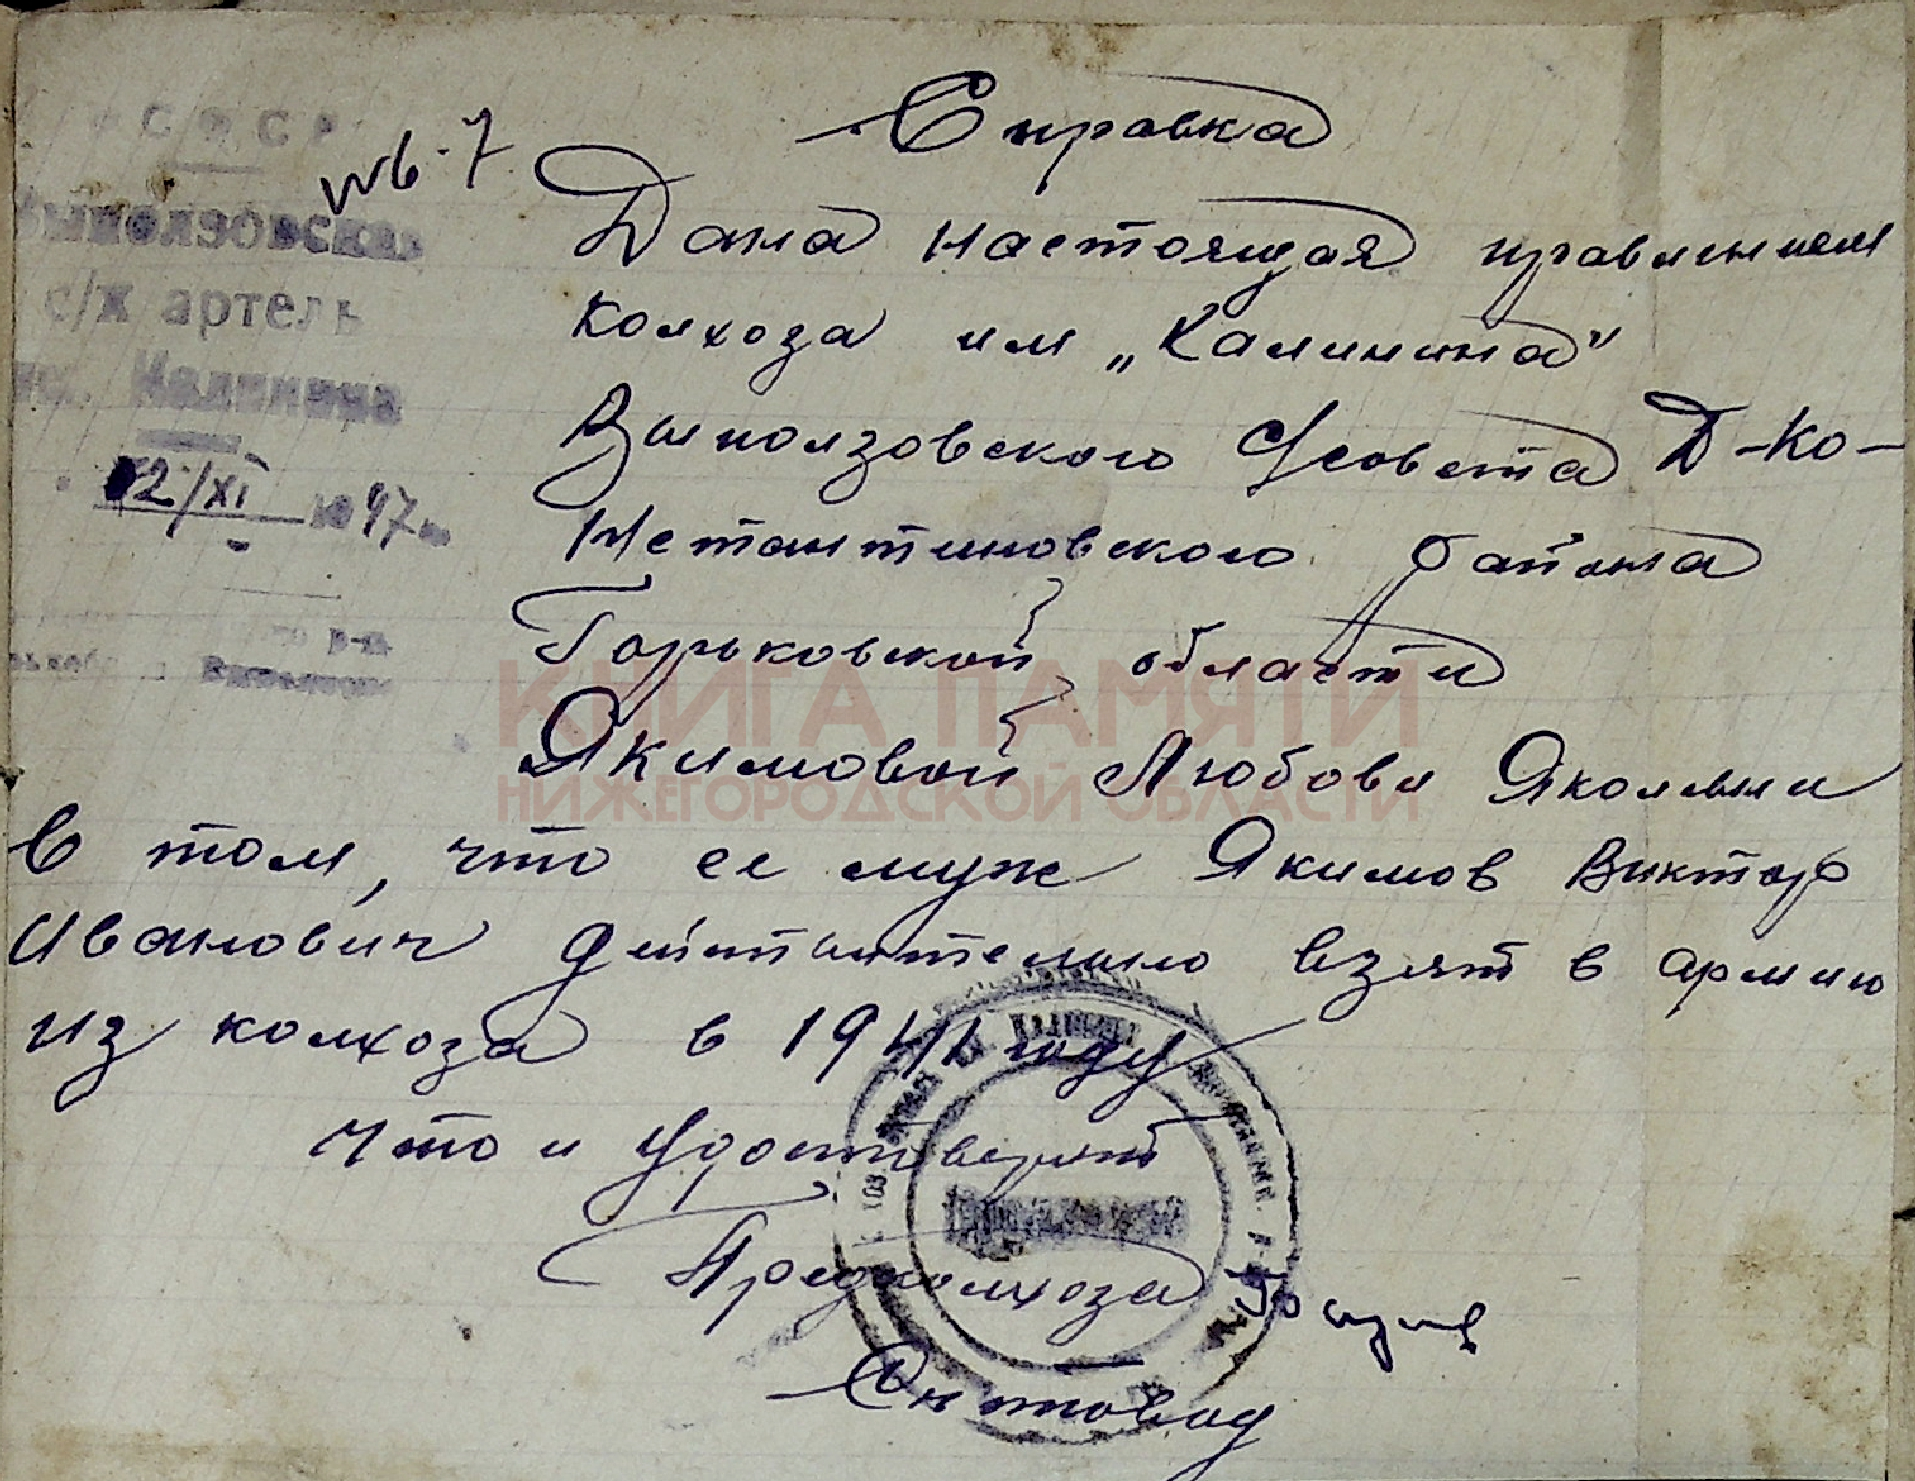 РСФСР
№ 7
Выползовская
с/х артель
им. Калинина
12/XI 1947 г.
р-на
Справка
Дана настоящая правлением
колхоза им „Калинина"
Выползовского С/совета Д-Ко-
нстантиновского района
Горьковской области
Якимовой Любови Яковлевни
в том, что ее муж Якимов Виктор
Иванович действительно взят в армию
из колхоза в 1941 году
Что и удостоверяет
Предколхоза
Счетовод
КНИГА ПАМЯТИ
НИЖЕГОРОДСКОЙ ОБЛАСТИ